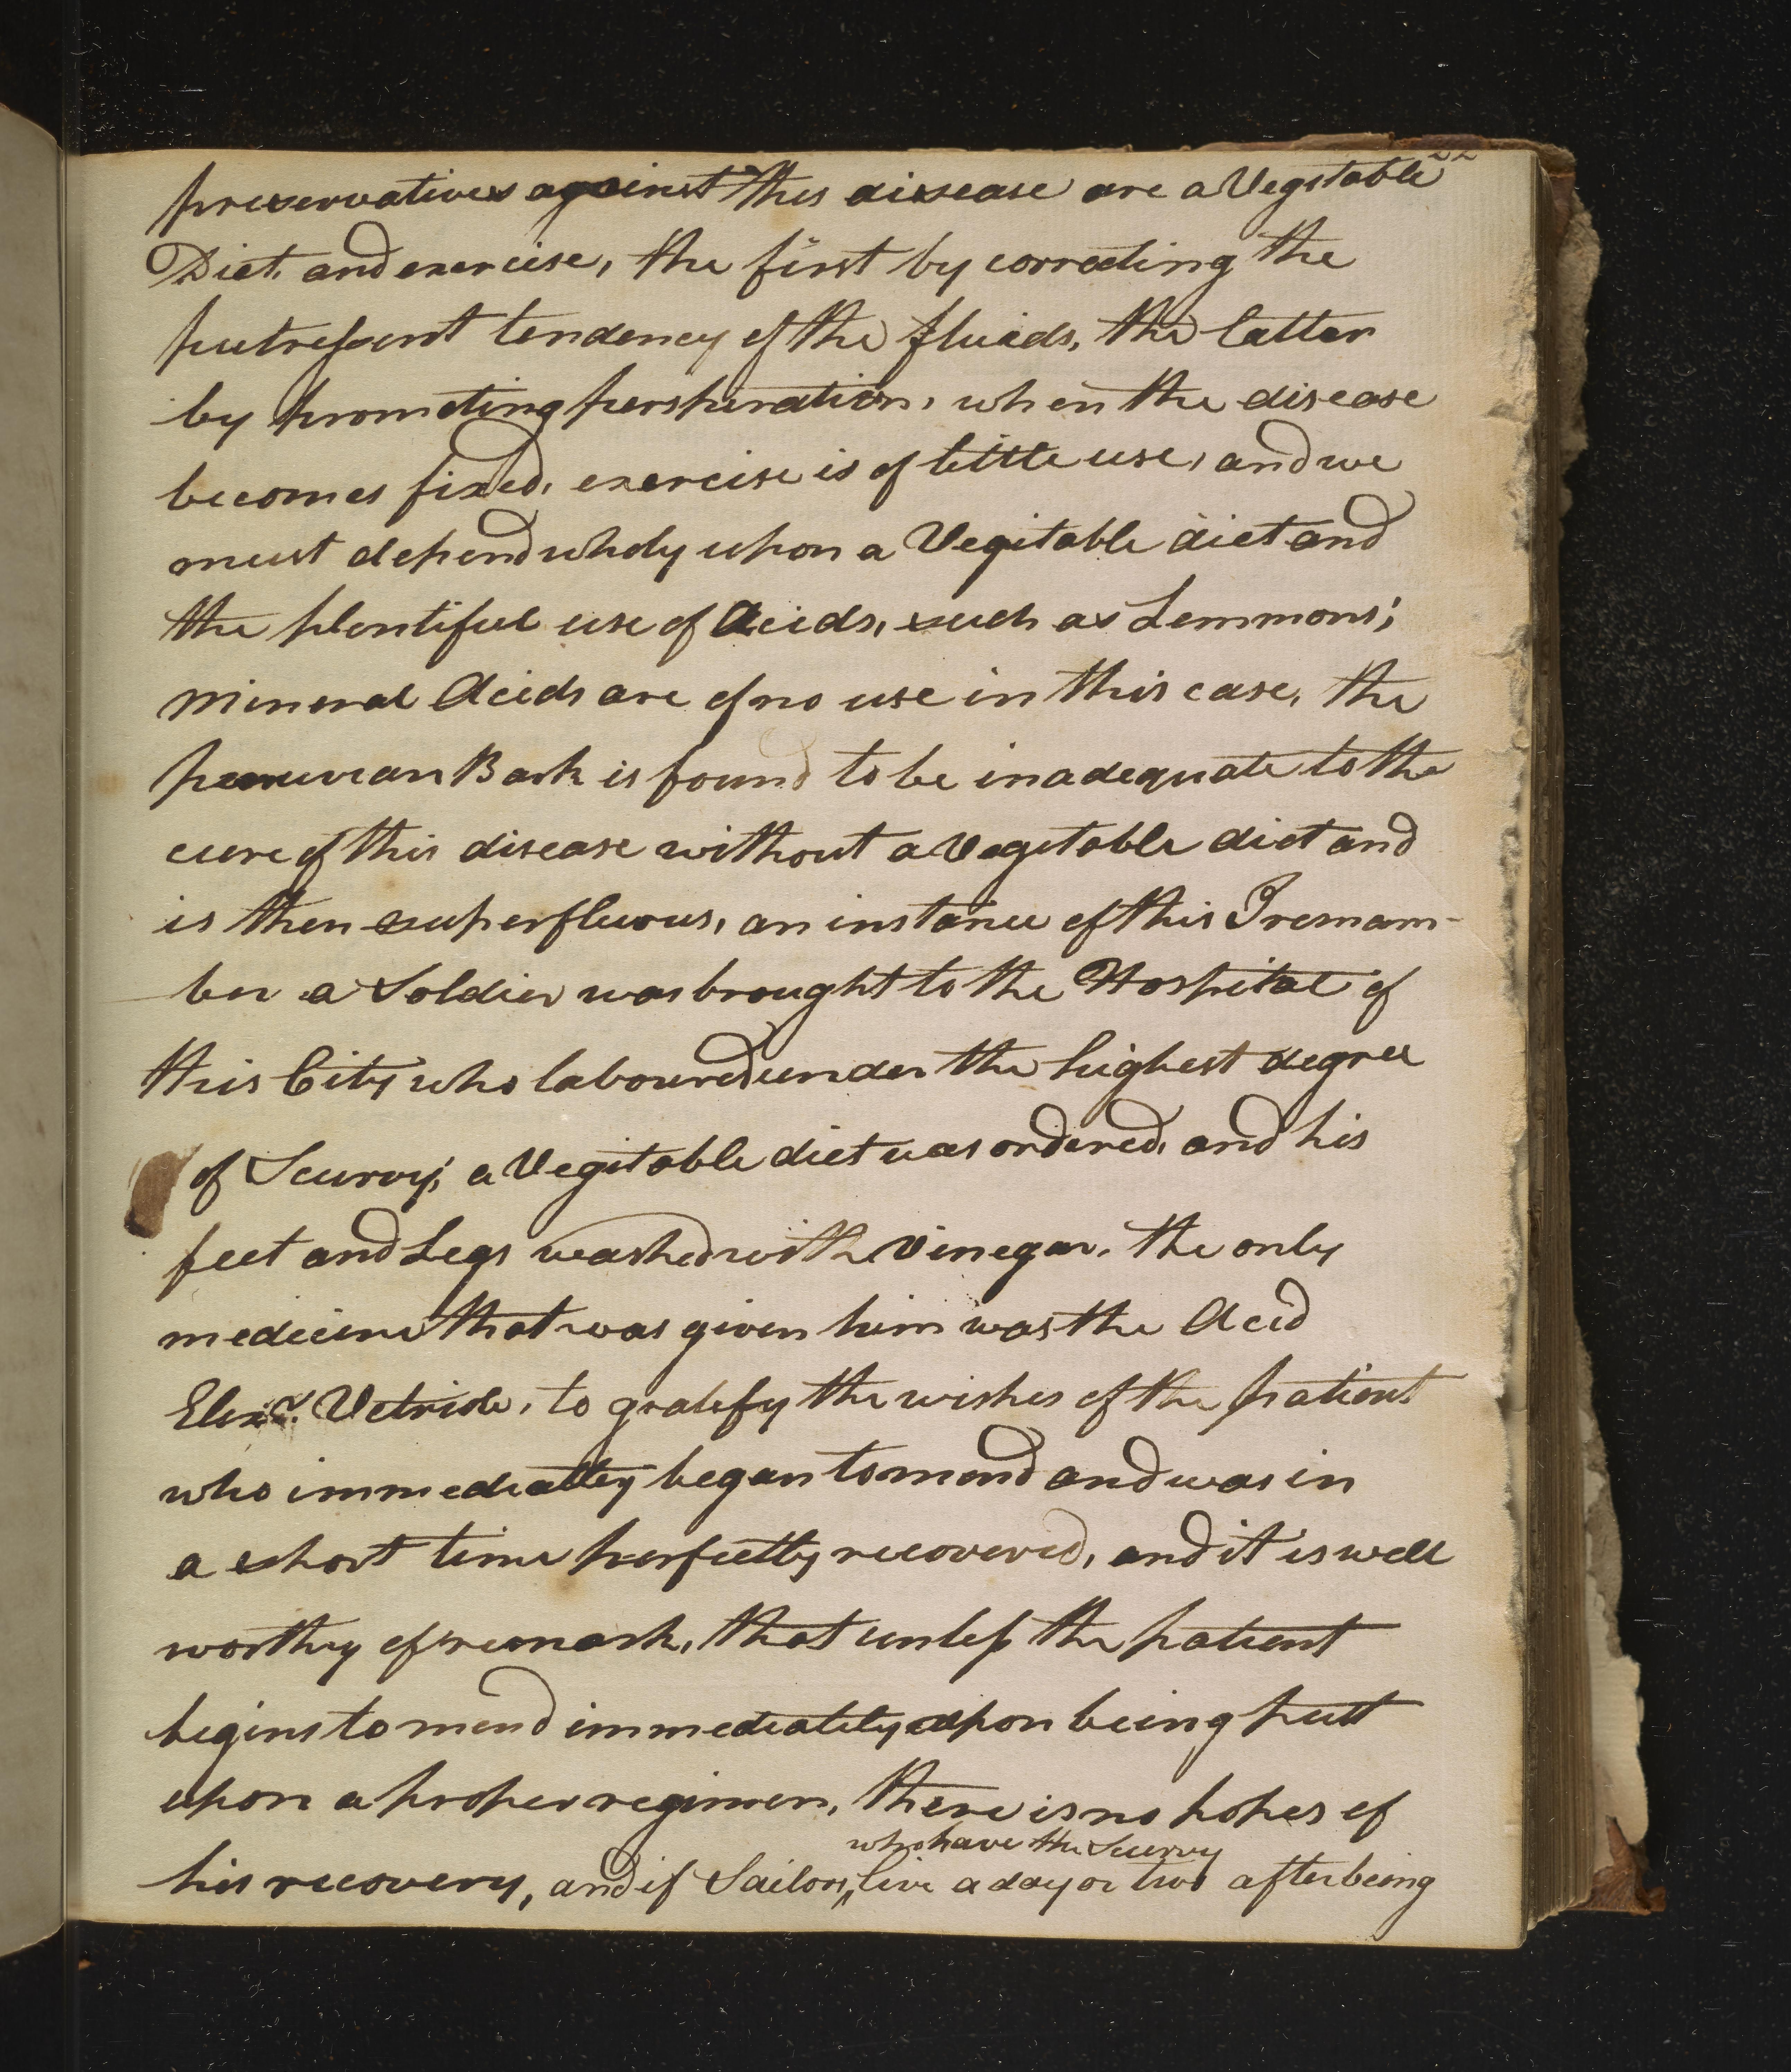 22
preservatives against this disease are a Vegitable
Diet, and exercise, the first by correcting the
putrescent tendency of the fluids, the latter
by promoting perspiration, when the disease
becomes fixed, exercise is of little use, and we
must depend wholy upon a Vegitable diet and
the plentiful use of Acids, such as Lemmons;
Mineral Acids are of no use in this case, the
peruvian Bark is found to be inadequate to the
cure of this disease without a Vegitable diet and
is then superfluous, an instance of this I remam-
ber a Soldier was brought to the Hospital of
this City who laboured under the highest degree
of Scurvy; a Vegitable diet was ordered, and his
feet and Legs washed with Vinegar. the only
medicine that was given him was the Acid
Elixr. Vetriole, to gratefy the wishes of the patient
who immediatley began to mend and was in
a short time perfectly recovered, and it is well
worthy of remark, that unless the patient
begins to mend immediately upon being putt
upon a proper regimen, there is no hopes of
who have the Scurvy
his recovery, and if Sailors, live a day or two after being